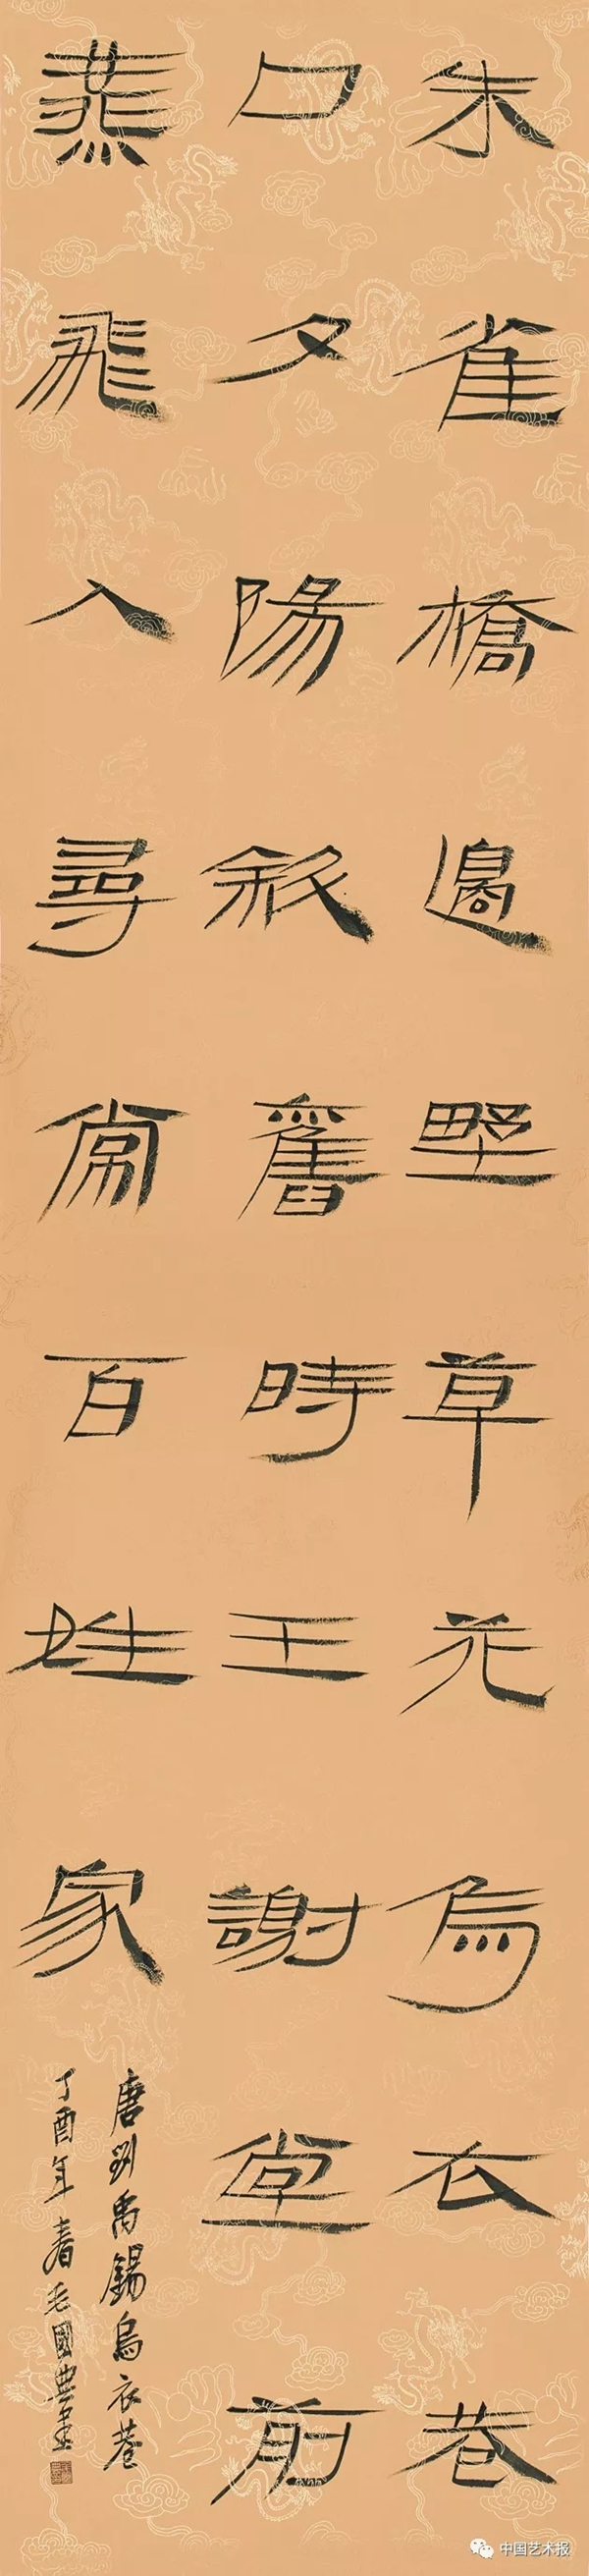 朱雀橋邊野草花烏衣巷
口夕陽斜舊時王謝堂前
燕飛入尋常百姓家
唐劉禹錫烏衣巷
丁酉年春毛國典書
中国艺术报